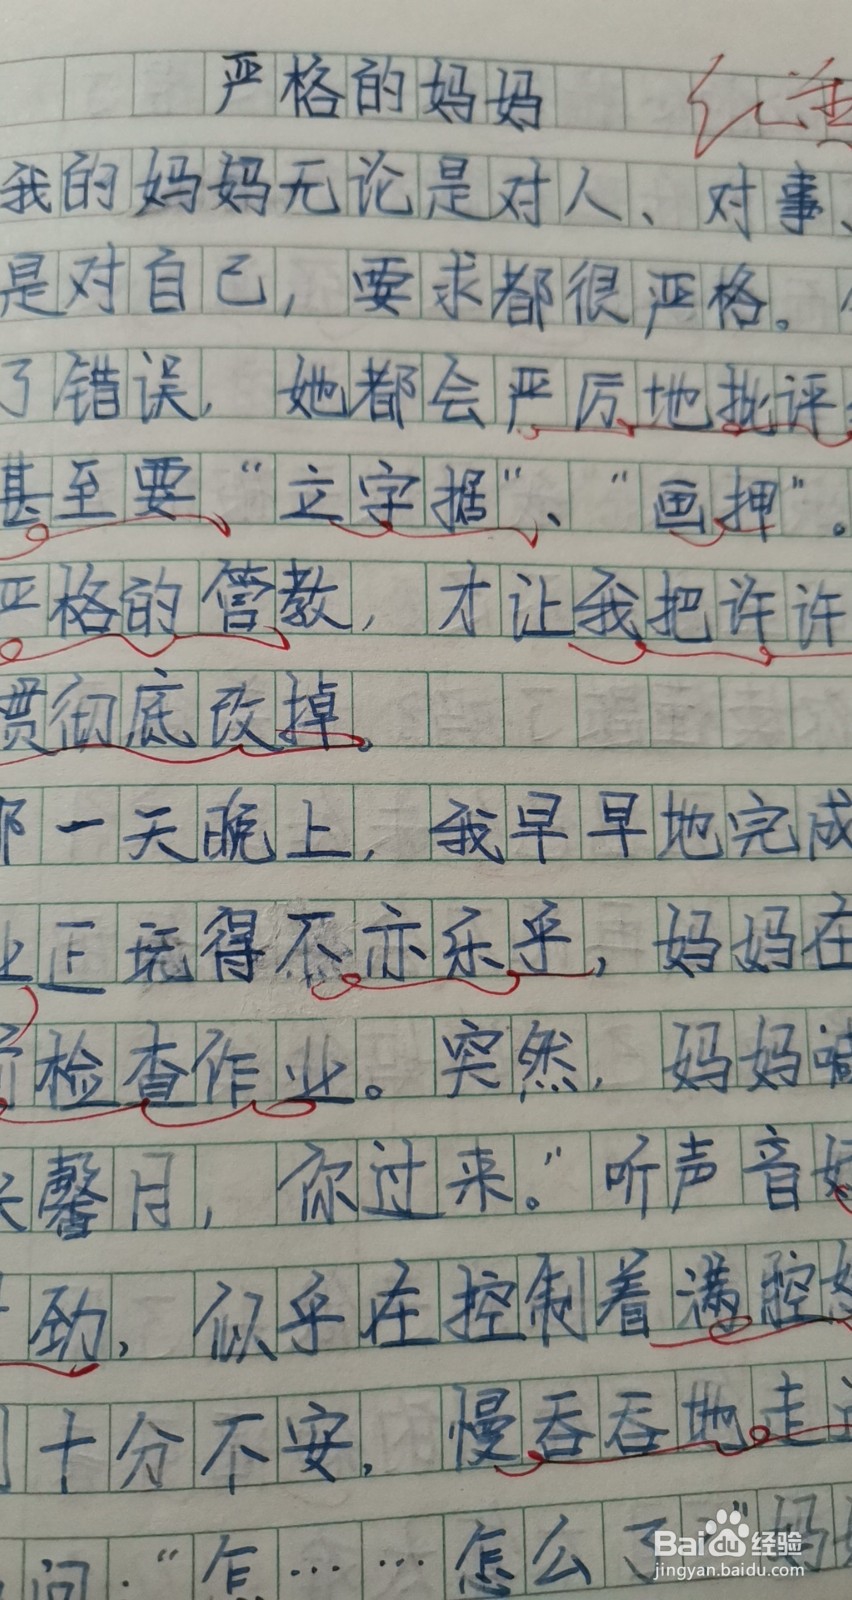 严格的妈妈
我的妈妈无论是对人、对事、
是对自己，要求都很严格。
了错误，她都会严厉地批评
甚至要“立字据”、“画押”。
严格的管教，才让我把许许
贯彻底改掉。
那一天晚上，我早早地完成
业正玩得不亦乐乎，妈妈在
前检查作业。突然，妈妈喊
馨月，你过来。”听声音好
劲，似乎在控制着满腔怒
十分不安，慢吞吞地走过
问：“怎……怎么了”妈妈
Baidu经验
jingyan.baidu.com